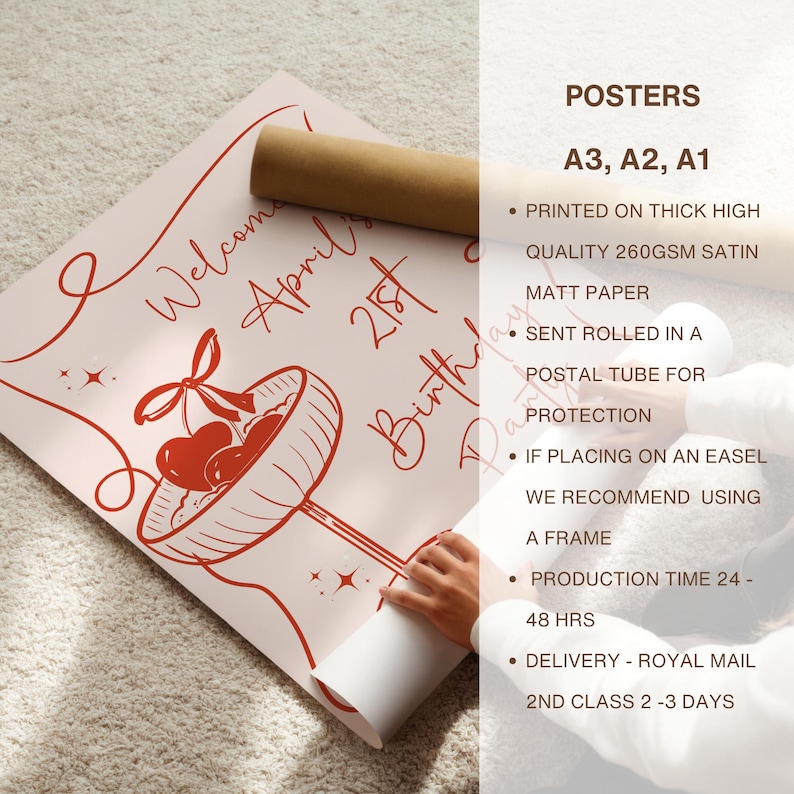 Welcome
April's
21st
Birthday
Party
POSTERS
A3, A2, A1
• PRINTED ON THICK HIGH
QUALITY 260GSM SATIN
MATT PAPER
• SENT ROLLED IN A
POSTAL TUBE FOR
PROTECTION
• IF PLACING ON AN EASEL
WE RECOMMEND USING
A FRAME
• PRODUCTION TIME 24 -
48 HRS
• DELIVERY - ROYAL MAIL
2ND CLASS 2 -3 DAYS